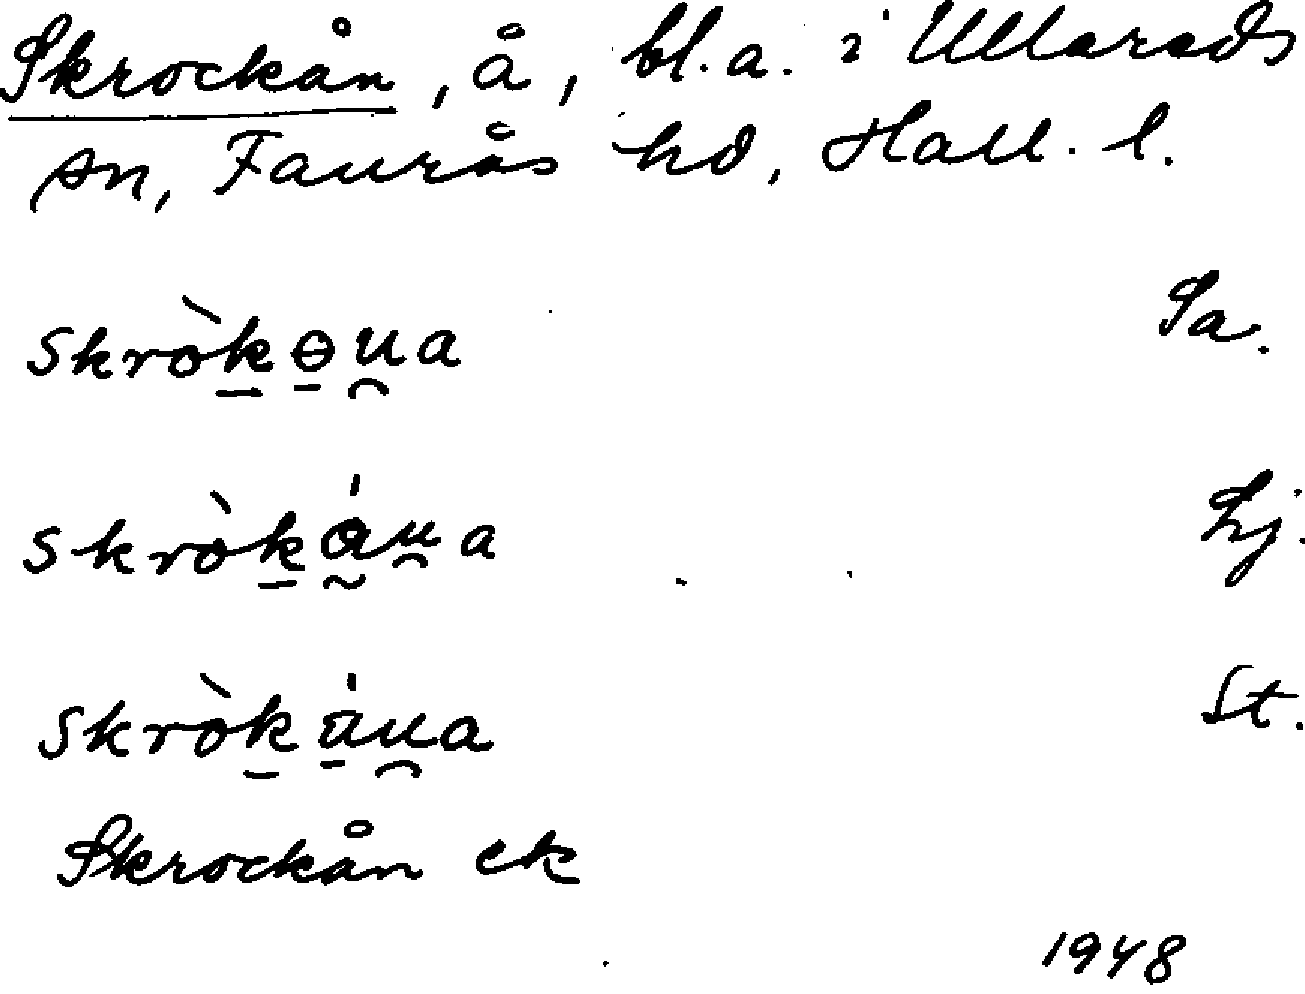 Skrockån, å, bl.a. i Ullareds
sn, Faurås hd, Hall. l.
skròkɵu̯a Sa.
skròkáu̯a Lj.
skròkúu̯a St.
Skrockån ek
1948